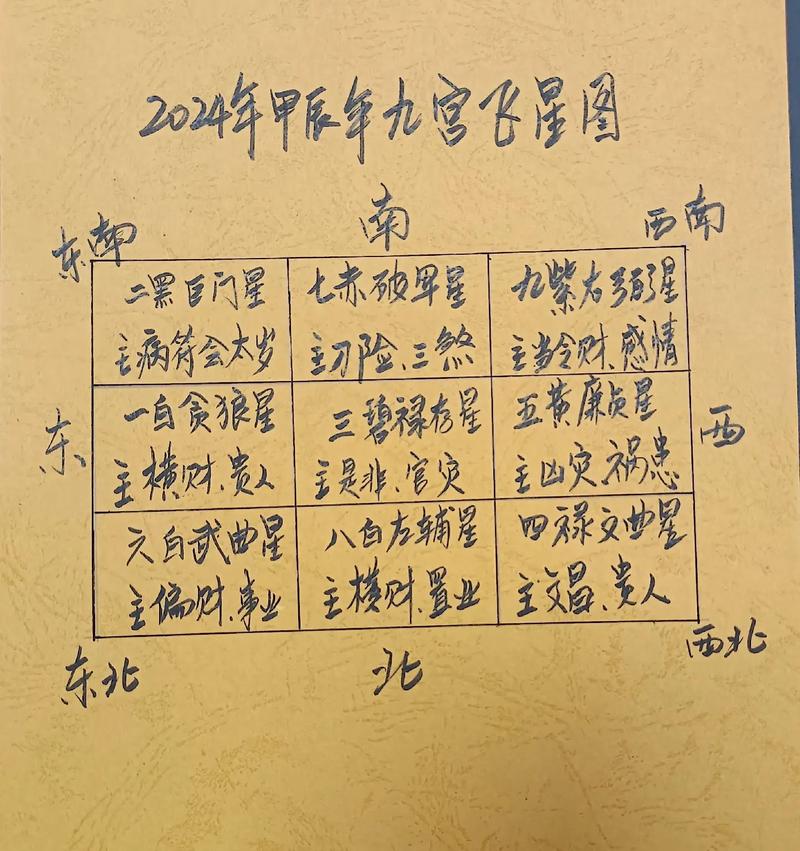 2024年甲辰年九宫飞星图
东南 南 西南
二黑巨门星 七赤破军星 九紫右弼星
主病符会太岁 主刀险、三煞 主当令财、感情
东 西
一白贪狼星 三碧禄存星 五黄廉贞星
主横财、贵人 主是非、官灾 主凶灾、祸患
六白武曲星 八白左辅星 四禄文曲星
主偏财、事业 主横财、置业 主文昌、贵人
东北 北 西北